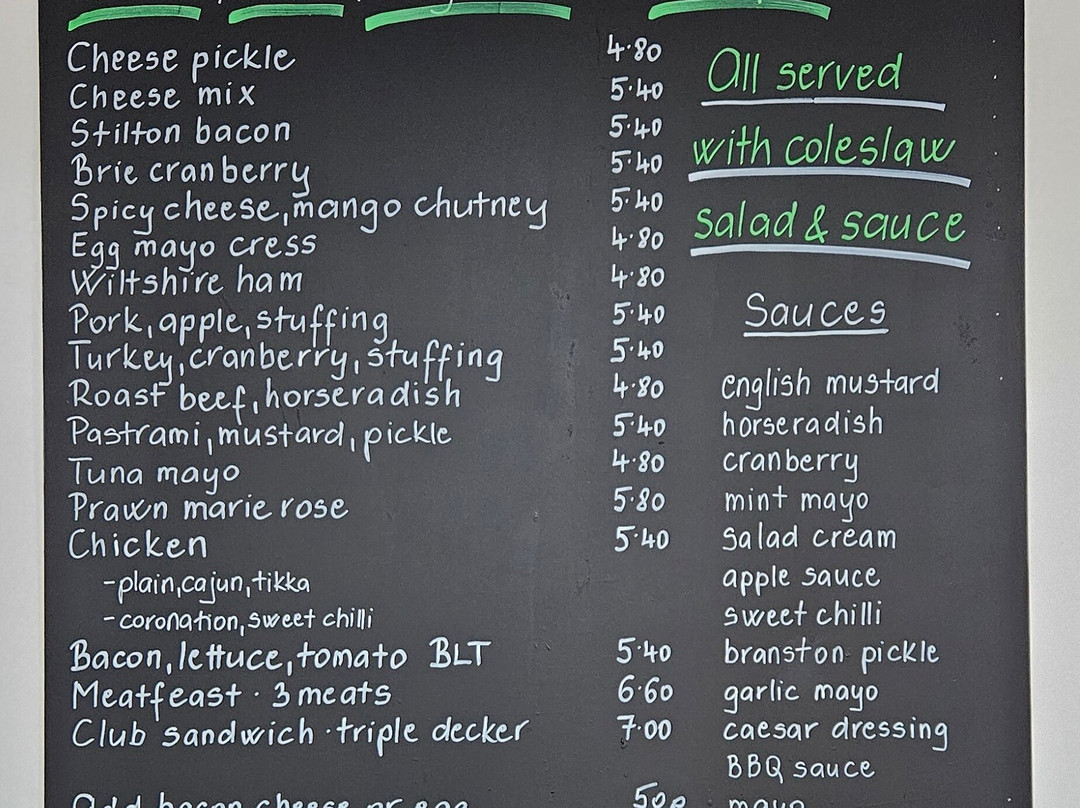 Cheese pickle 4.80
Cheese mix 5.40
Stilton bacon 5.40
Brie cranberry 5.40
Spicy cheese, mango chutney 5.40
Egg mayo cress 4.80
Wiltshire ham 4.80
Pork, apple, stuffing 5.40
Turkey, cranberry, stuffing 5.40
Roast beef, horseradish 4.80
Pastrami, mustard, pickle 5.40
Tuna mayo 4.80
Prawn marie rose 5.80
Chicken 5.40
-plain, cajun, tikka
-coronation, sweet chilli
Bacon, lettuce, tomato BLT 5.40
Meatfeast · 3 meats 6.60
Club sandwich · triple decker 7.00
Add bacon cheese or egg 50p
All served
with coleslaw
salad & sauce
Sauces
english mustard
horseradish
cranberry
mint mayo
salad cream
apple sauce
sweet chilli
branston pickle
garlic mayo
caesar dressing
BBQ sauce
mayo